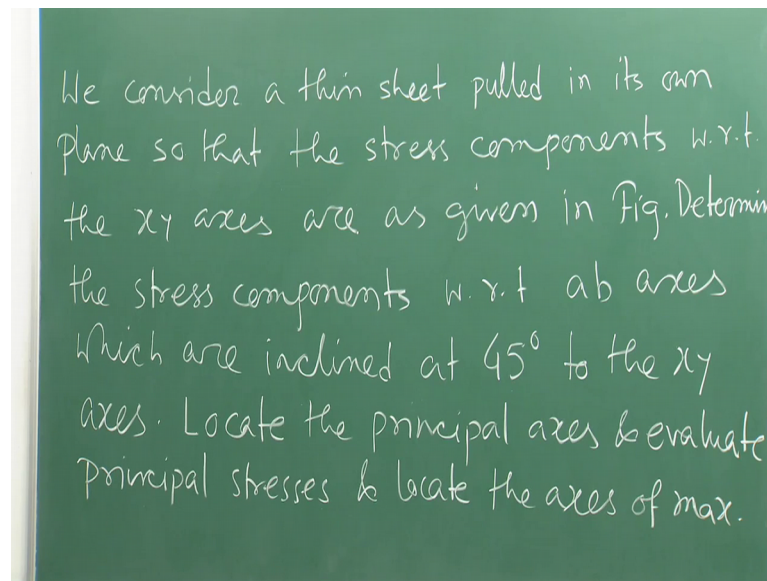 We consider a thin sheet pulled in its own
plane so that the stress components w.r.t.
the xy axes are as given in Fig. Determin
the stress components w.r.t ab axes
which are inclined at 45° to the xy
axes. Locate the principal axes & evaluate
principal stresses & locate the axes of max.